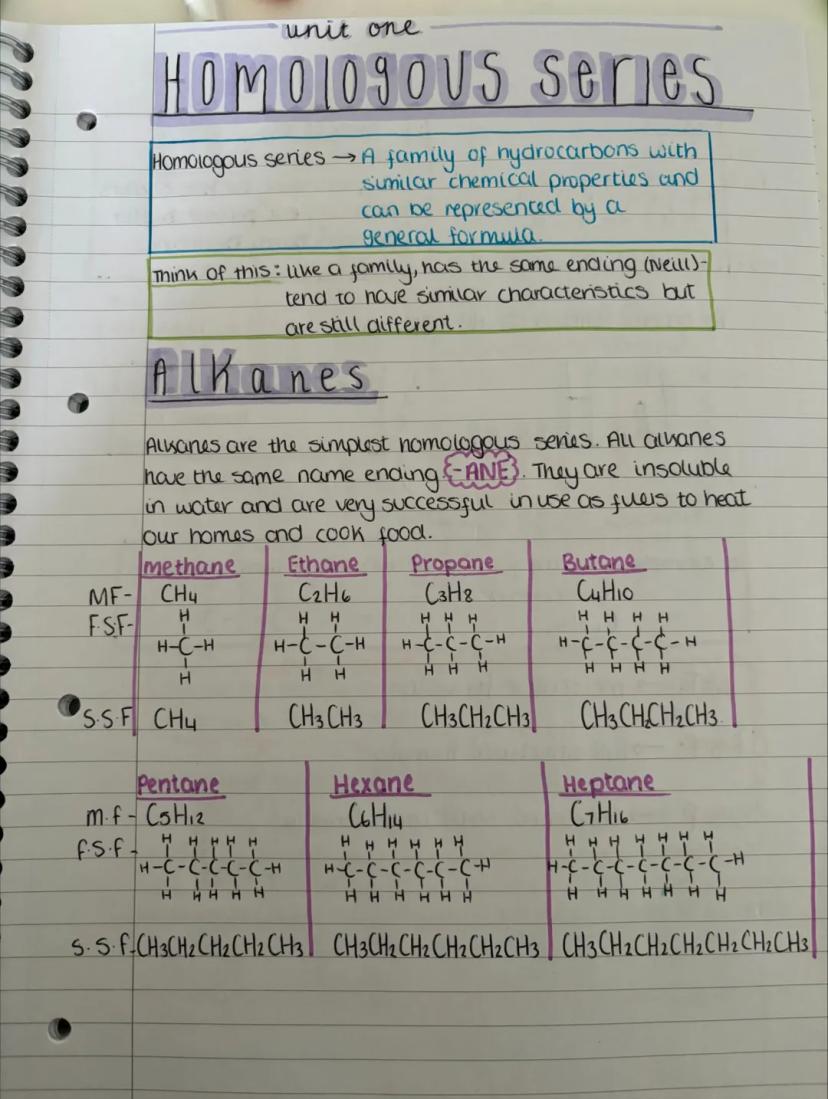 unit one
Homologous series
Homologous series → A family of hydrocarbons with
similar chemical properties and
can be represented by a
general formula.
Think of this: like a family, has the same ending (Neill)-
tend to have similar characteristics but
are still different.
Alkanes
Alkanes are the simplest homologous series. All alkanes
have the same name ending -ANE. They are insoluble
in water and are very successful in use as fuels to heat
our homes and cook food.
methane Ethane Propane Butane
MF- CH4 C2H6 C3H8 C4H10
F.S.F-
H H H H H H H H H H
H-C-H H-C-C-H H-C-C-C-H H-C-C-C-C-H
H H H H H H H H H H
S.S.F CH4 CH3CH3 CH3CH2CH3 CH3CH2CH2CH3
Pentane Hexane Heptane
m.f- C5H12 C6H14 C7H16
f.s.f-
H H H H H H H H H H H H H H H H H H
H-C-C-C-C-C-H H-C-C-C-C-C-C-H H-C-C-C-C-C-C-C-H
H H H H H H H H H H H H H H H H H H
s.s.f- CH3CH2CH2CH2CH3 CH3CH2CH2CH2CH2CH3 CH3CH2CH2CH2CH2CH2CH3